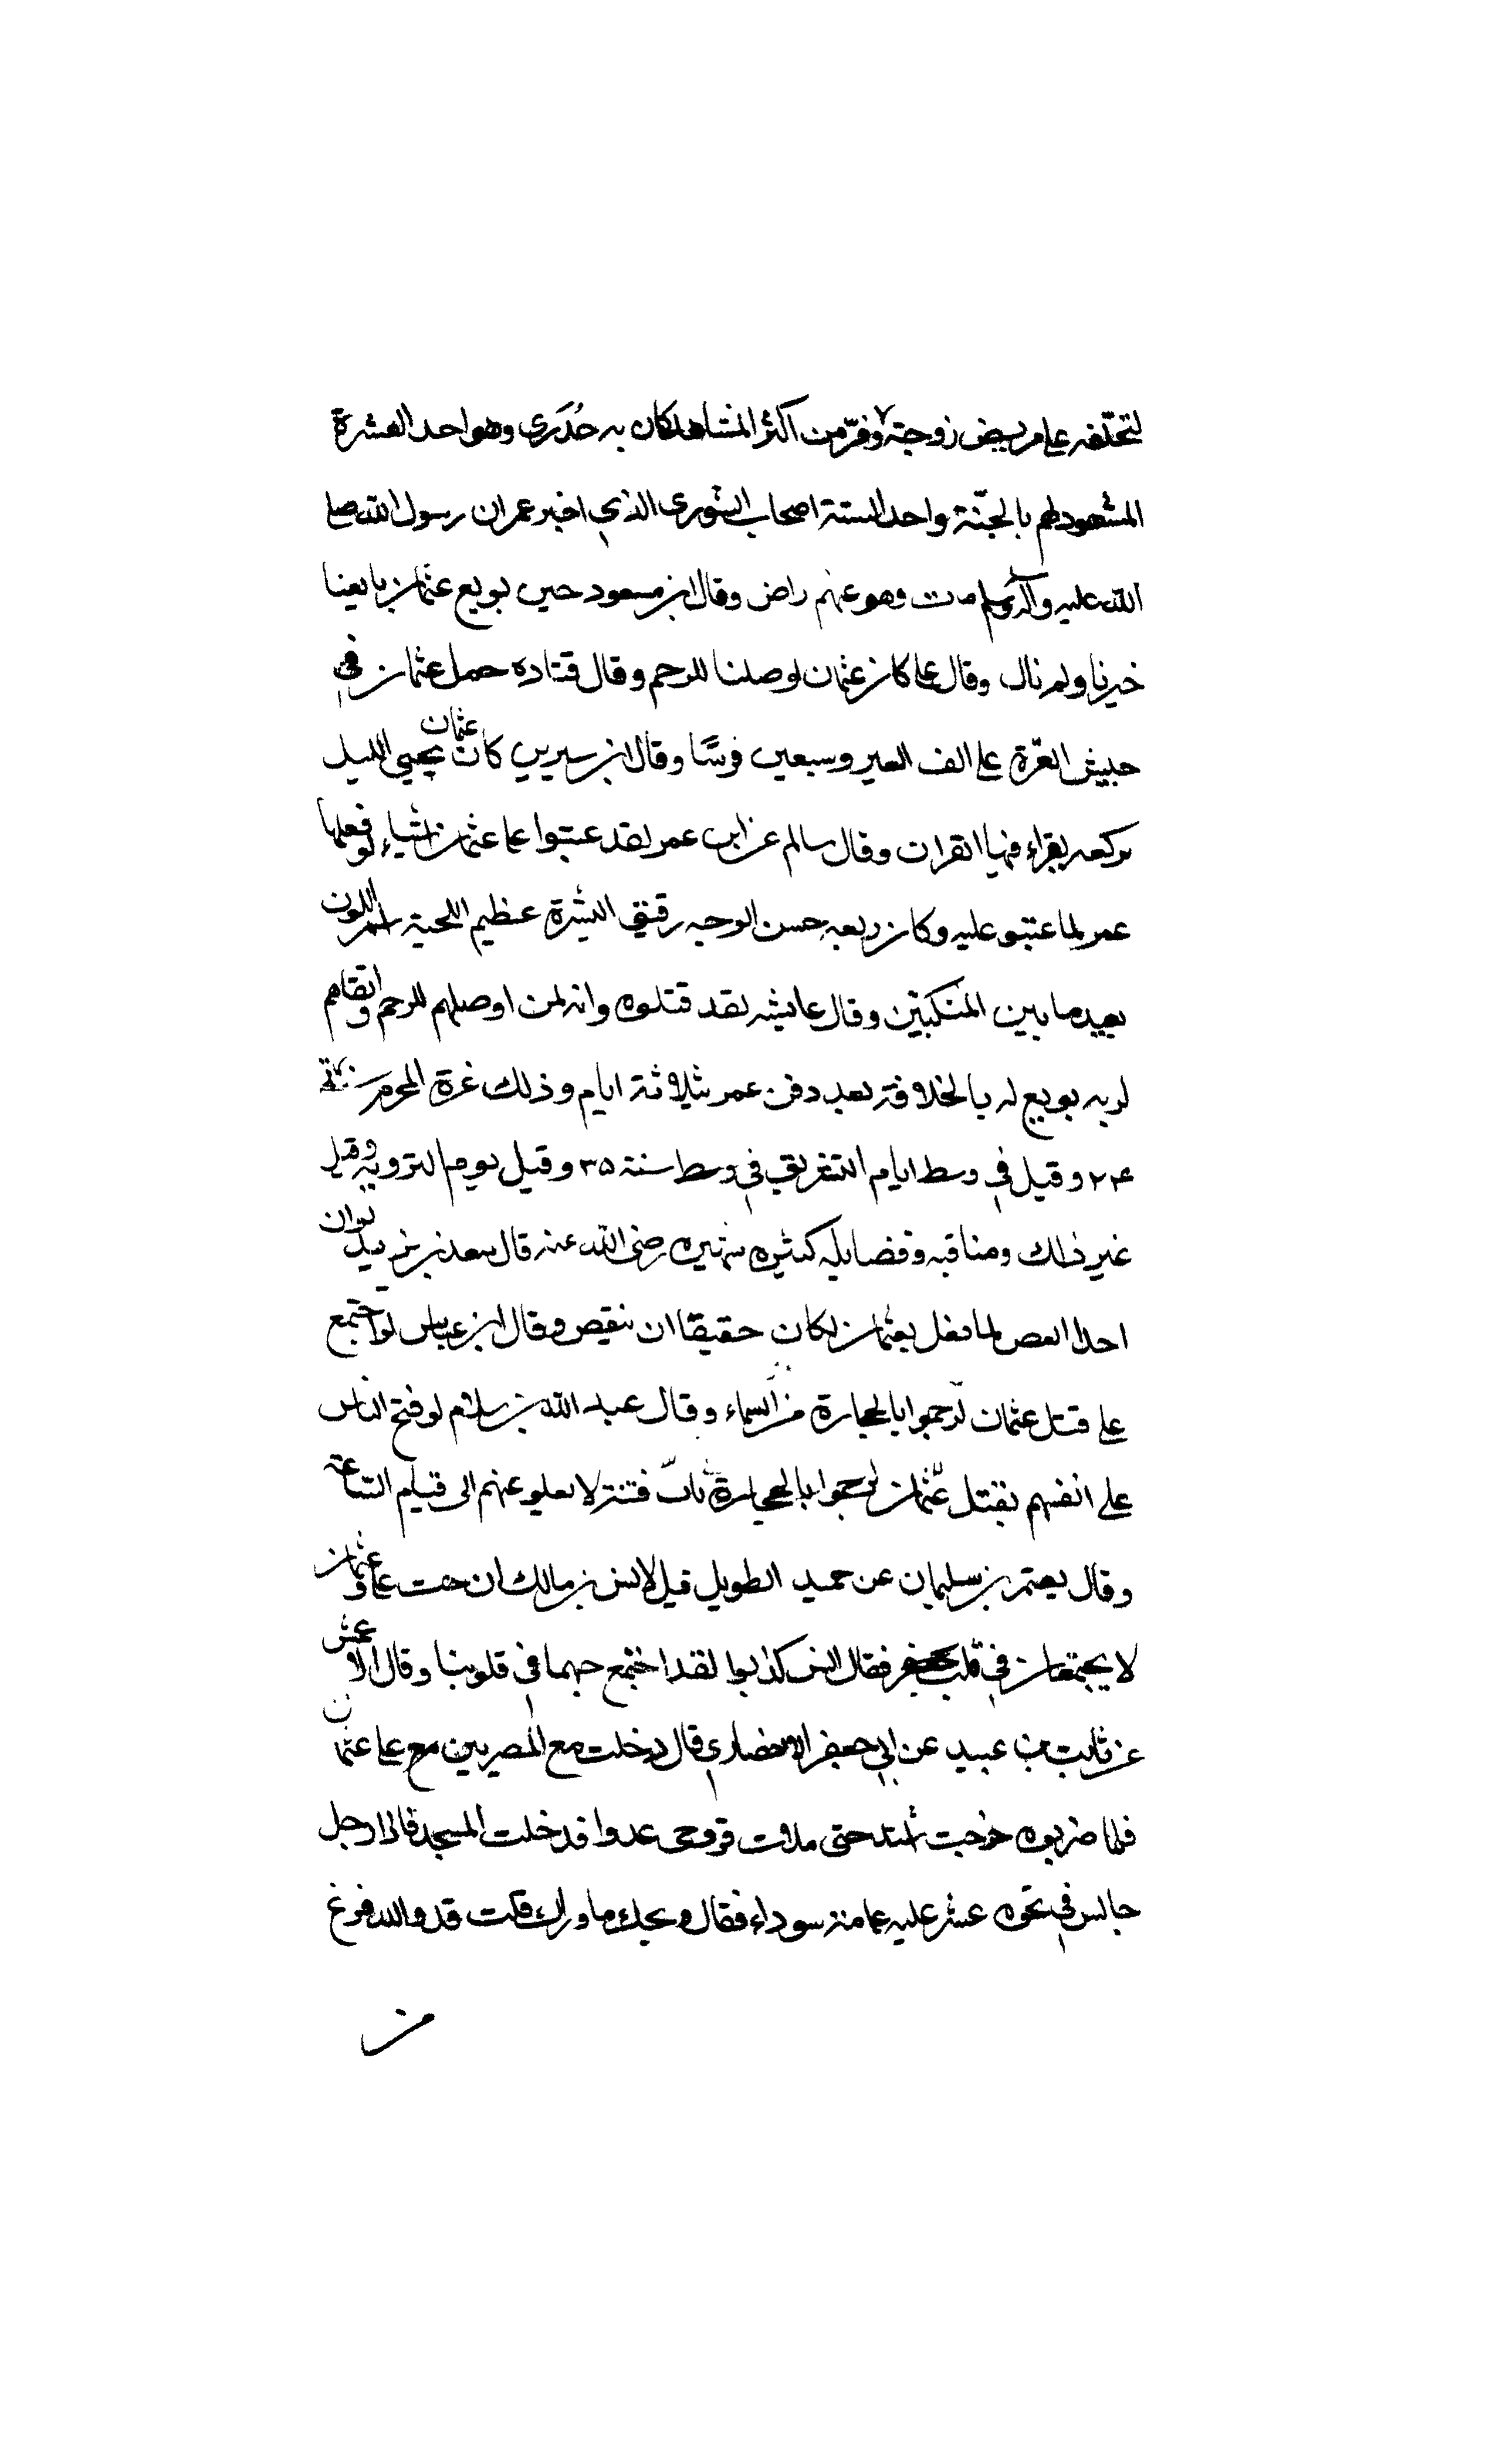 لتخلّفه على مريض زوجته وفرّ من اكثر المشاهد كان به جُدَرى وهو احد العشرة
المشهود لهم بالجنّة واحد الستة اصحاب الشورى الذي اخبر عمر ان رسول الله صلى
الله عليه وآله وسلم مات وهو عنهم راض وقال ابن مسعود حين بويع عثمان بايعنا
خيرنا ولم نال وقال على كان عثمان لوصلنا للرحم وقال قتاده حمل عثمان في
جيش العّرة على الف بعير وسبعين فرسًا وقال ابن سيرين كان عثمان يحيي الليل
بركعه يقراء فيها القران وقال سالم عن ابن عمر لقد عتبوا على عثمان اشياء لو فعلها
عمر لما عتبو عليه وكان ربعه حسن الوجه رقيق البشرة عظيم اللحية اسمر اللون
بعيد ما بين المنكبين وقال عايشه لقد قتلوه وانه لمن اوصلهم للرحم واتقاهم
لربه بويع له بالخلافة بعد دفن عمر بثلاثة ايام وذلك غرة المحرم سنة
٢٤ وقيل في وسط ايام التشريق في وسط سنة ٣٥ وقيل يوم التروية وقيل
غير ذلك ومناقبه وفضايله كثيره شهيره رضى الله عنه قال سعد بن زيد لو ان
احدا انقص لما فعل بعثمان لكان حقيقا ان ينقص وقال ابن عباس لو اجتمع
على قتل عثمان لرجموا بالحجارة من السماء وقال عبد الله بن سلام لو فتح الناس
على انفسهم بقتل عثمان باب فتنة لا يغلو عنهم الى قيام الساعة
وقال معتمر بن سليمان عن حميد الطويل قيل لانس بن مالك ان حب على وعثمان
لا يجتمعان في قلب فقال انس كذبوا لقد اجتمع حبهما في قلوبنا وقال الاعمش
عن ثابت بن عبيد عن ابي جعفر الانصاري قال دخلت مع المصريين مع على عثمان
فلما ضربوه خرجت اشتد حتى ملات فروجى عدوا فدخلت المسجد فاذا رجل
جالس في نحوه عشر عليه عمامة سوداء فقال ويحك ما وراك قلت قد والله فرغ
من